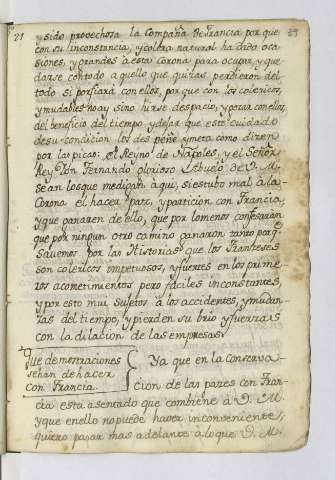 21
33
y sido provechosa la Compañia de Francia por que
con su inconstancia, y colera natural ha dado oca-
siones, y grandes a esta Corona para ocupar, y que
darse con todo a quello que quizas perdieron del
todo si porfiara con ellos, por que con los colericos,
y mudables no ay sino hirse despacio, y gozar con ellos
del beneficio del tiempo, y dejar que este cuidado
de su condicion los des peñe y meta como dizen
por las picas: el Reyno de Napoles, y el Señor
Rey Don Fernando glorioso Abuelo de V. M.
sean los que me digan aqui, si estubo mal à la
Corona el hacer Paz, y particion con Francia,
y que ganaron de ello, que por lo menos confesaràn
que por ningun otro camino ganaron tanto por q.
Savemos por las Historias que los Franzeses
son colericos impetuosos, y fuertes en los prime
ros acometimientos pero faciles inconstantes,
y por esto mui Sujetos à los accidentes, y mudan-
zas del tiempo, y pierden su brio y fuerzas
con la dilacion de las empresas.
Que demostraciones
se han de hacer
con Francia
Ya que en la Conserva-
cion de las pazes con Fran-
cia esta asentado que combiene à V. M.
y que en ello no puede haver inconveniente,
quiero pasar mas adelante à lo que V. M.